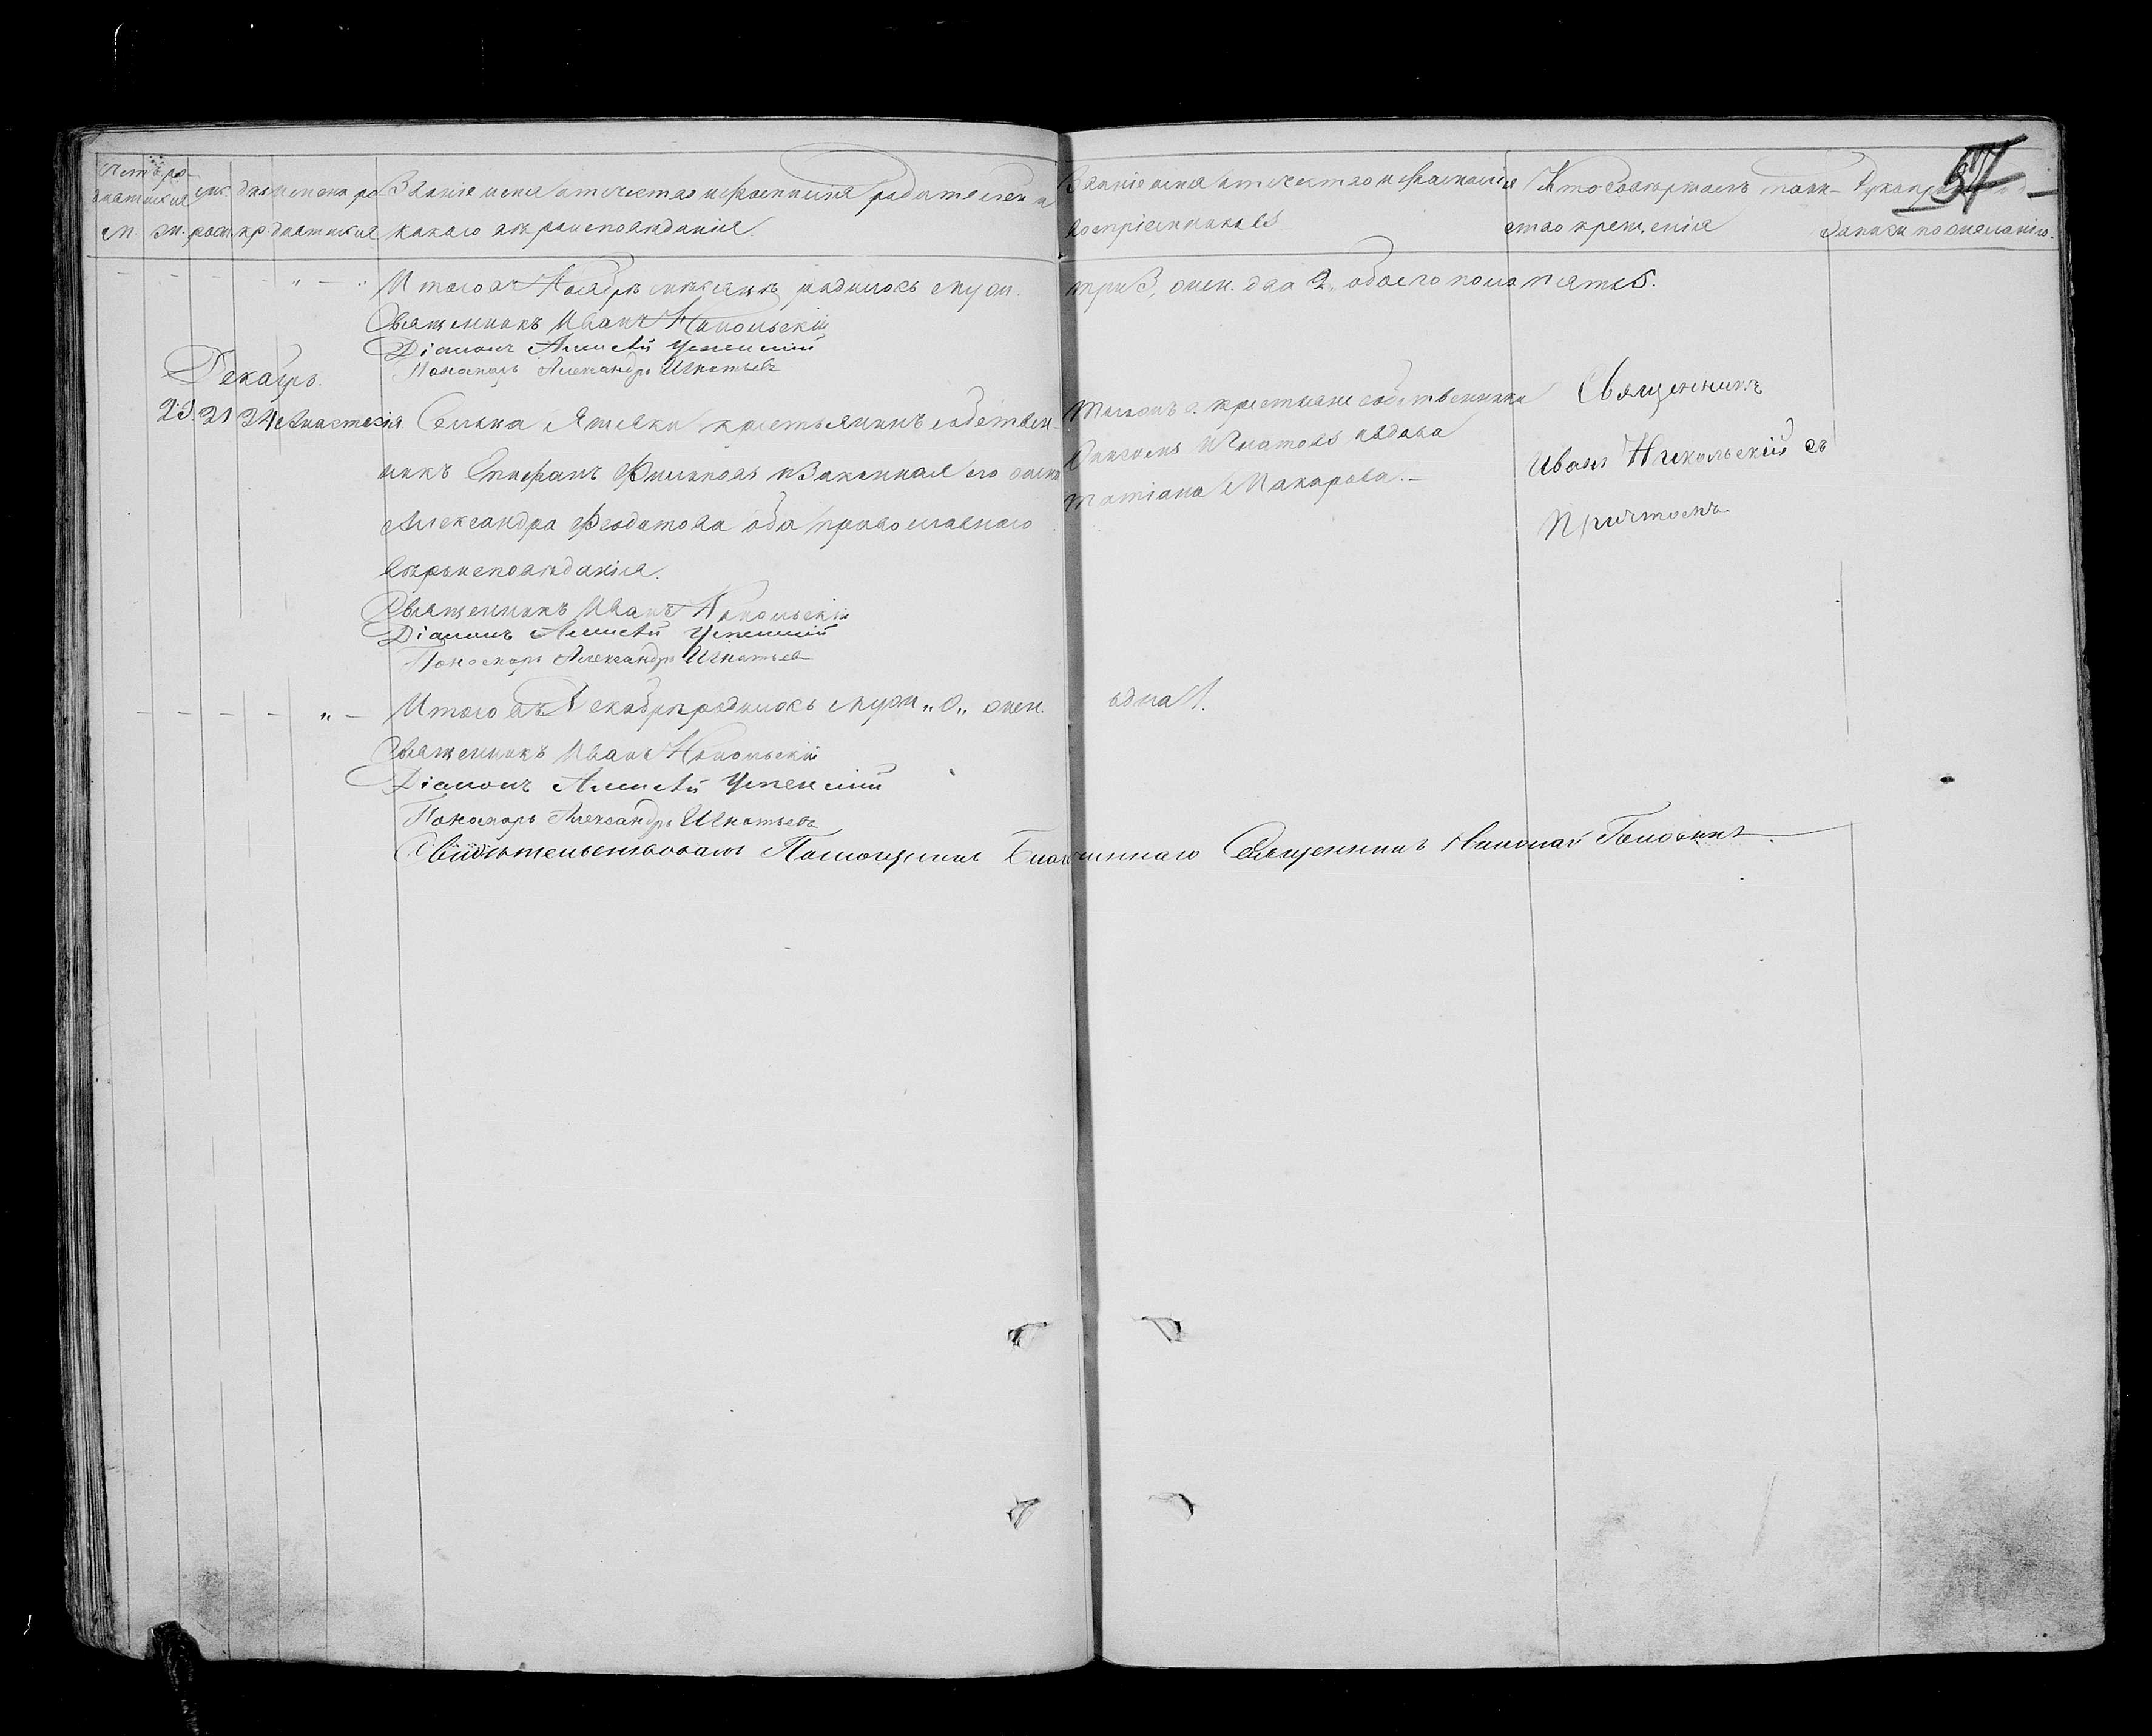 Счетъ ро
дившихся
М. Ж.
рож. кр.
Имена ро
дившихся
Званіе имя отчество и фамилія родителей и
какого вѣроисповѣданія.
Званіе имя отчество и фамилія
воспріемниковъ
Кто совершалъ таин-
ство крещенія
записи по желанію.
Итого въ Ноябрѣ мѣсяцѣ родилось муж. три 3, жен. два 2, обоего пола пять 5.
Священникъ Иванъ Никольскій
Діаконъ Алексѣй Успенскій
Пономарь Александръ Игнатьевъ
Декабрь.
23 21 24 Анастасія
Селька крестьянинъ собствен-
никъ Епифанъ Филиповъ и Законная его жена
Александра Феодотова оба православнаго
вѣроисповѣданія.
крестьянe собственники
Игнатовъ и вдова
Татіана Макарова.-
Священникъ
Иванъ Никольскій съ
Причтомъ.
Священникъ Иванъ Никольскій
Діаконъ Алексѣй Успенскій
Пономарь Александръ Игнатьевъ
Итого въ Декабрѣ родилось муж „0„ жен. одна 1.
Священникъ Иванъ Никольскій
Діаконъ Алексѣй Успенскій
Пономарь Александръ Игнатьевъ
Свидѣтельствовалъ Помощникъ Благочиннаго Священникъ Николай